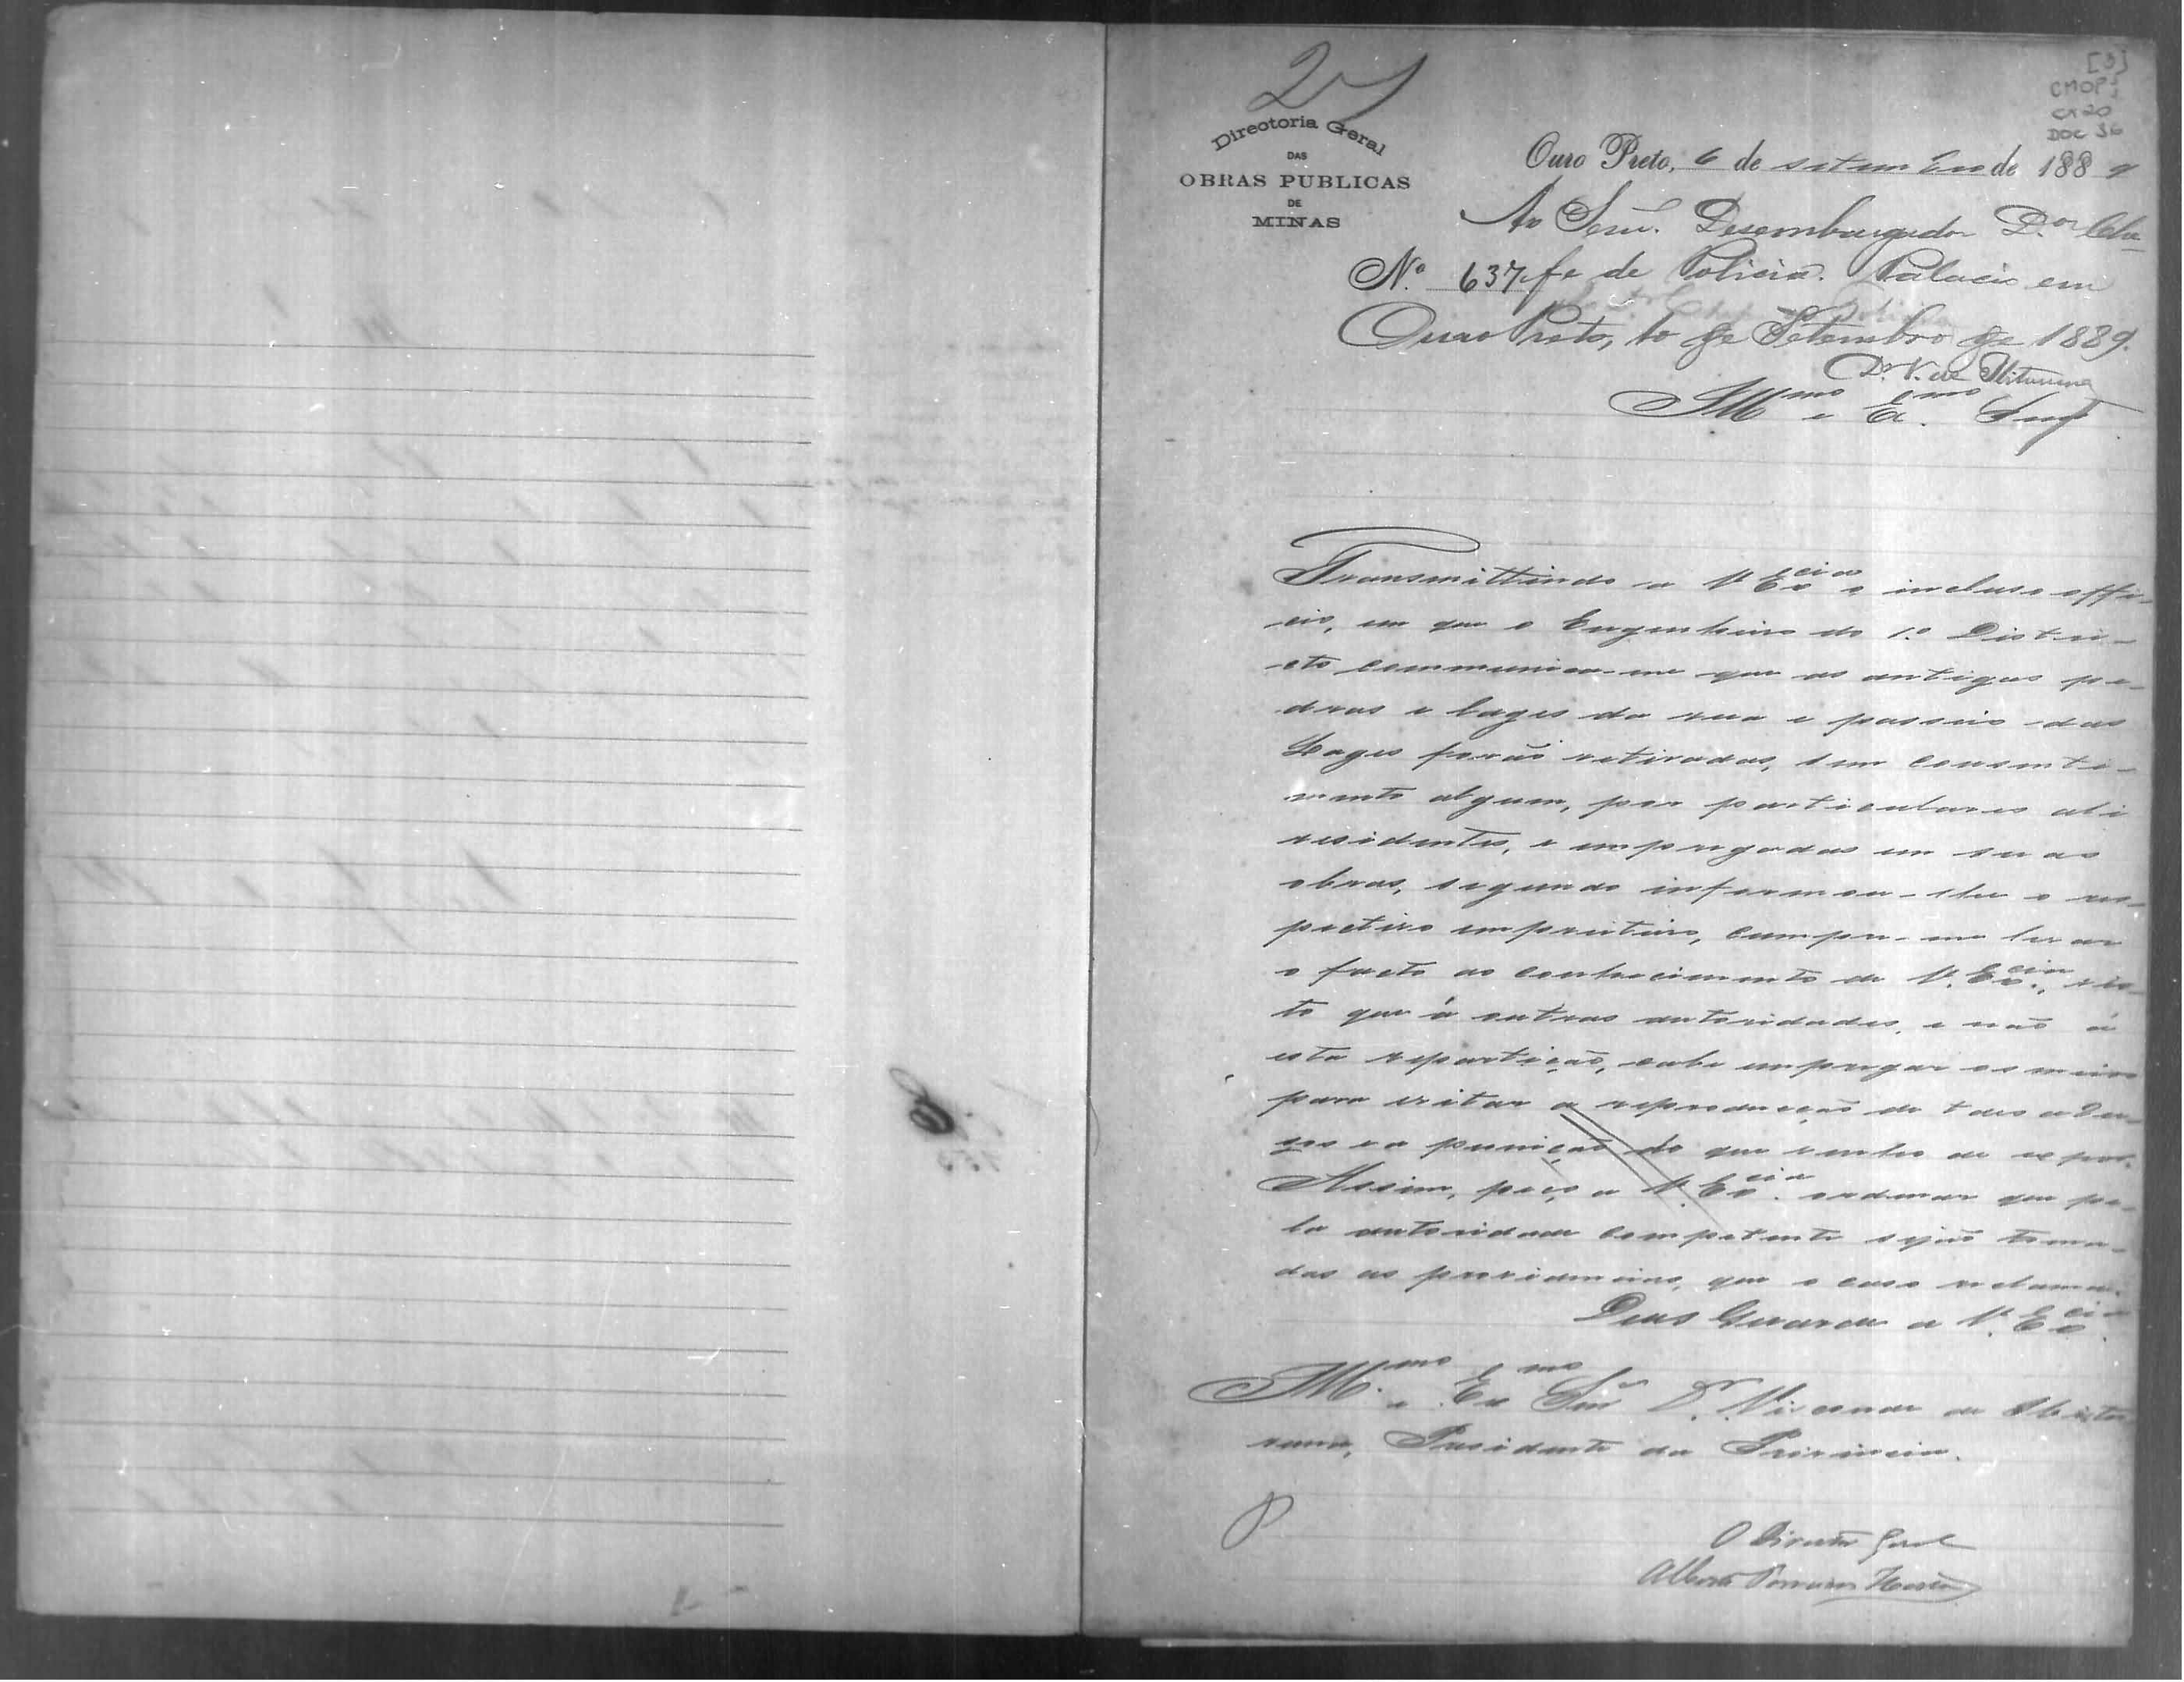 21
[3]
CMOP
cx 20
DOC 36
Directoria Geral
DAS
OBRAS PUBLICAS
DE
MINAS
Ouro Preto, 6 de setembro de 1889
Ao Senr. Desembargador D.or Che-
N.o 637 fe de Policia. Palacio em
Ouro Preto, 10 de Setembro de 1889.
Dr. V. de Ibituruna
Illmo e Exmo Snr
Transmittindo a V Excia o incluso offi-
cio, em que o Engenheiro do 1.o Distri-
cto communica-me que as antigas pe-
dras e lages da rua e passeio das
Lages forão retiradas, sem consenti-
mento algum, por particulares ali
residentes, e empregadas em suas
obras, segundo informou-lhe o res-
pectivo empreiteiro, cumpre-me levar
o facto ao conhecimento de V. Excia., vis-
to que á outras autoridades, e não á
esta repartição, cabe empregar os meios
para evitar a reproducção de taes abu-
sos e a punição do que venho de expor.
Assim, peço a V. Excia. ordenar que pe-
la autoridade competente sejão toma-
das as providencias, que o caso reclama.
Deus Guarde a V. Excia.
Illmo. e Exmo Snr Dr. Visconde de Ibitu-
runa, Presidente da Provincia.
O Director Geral